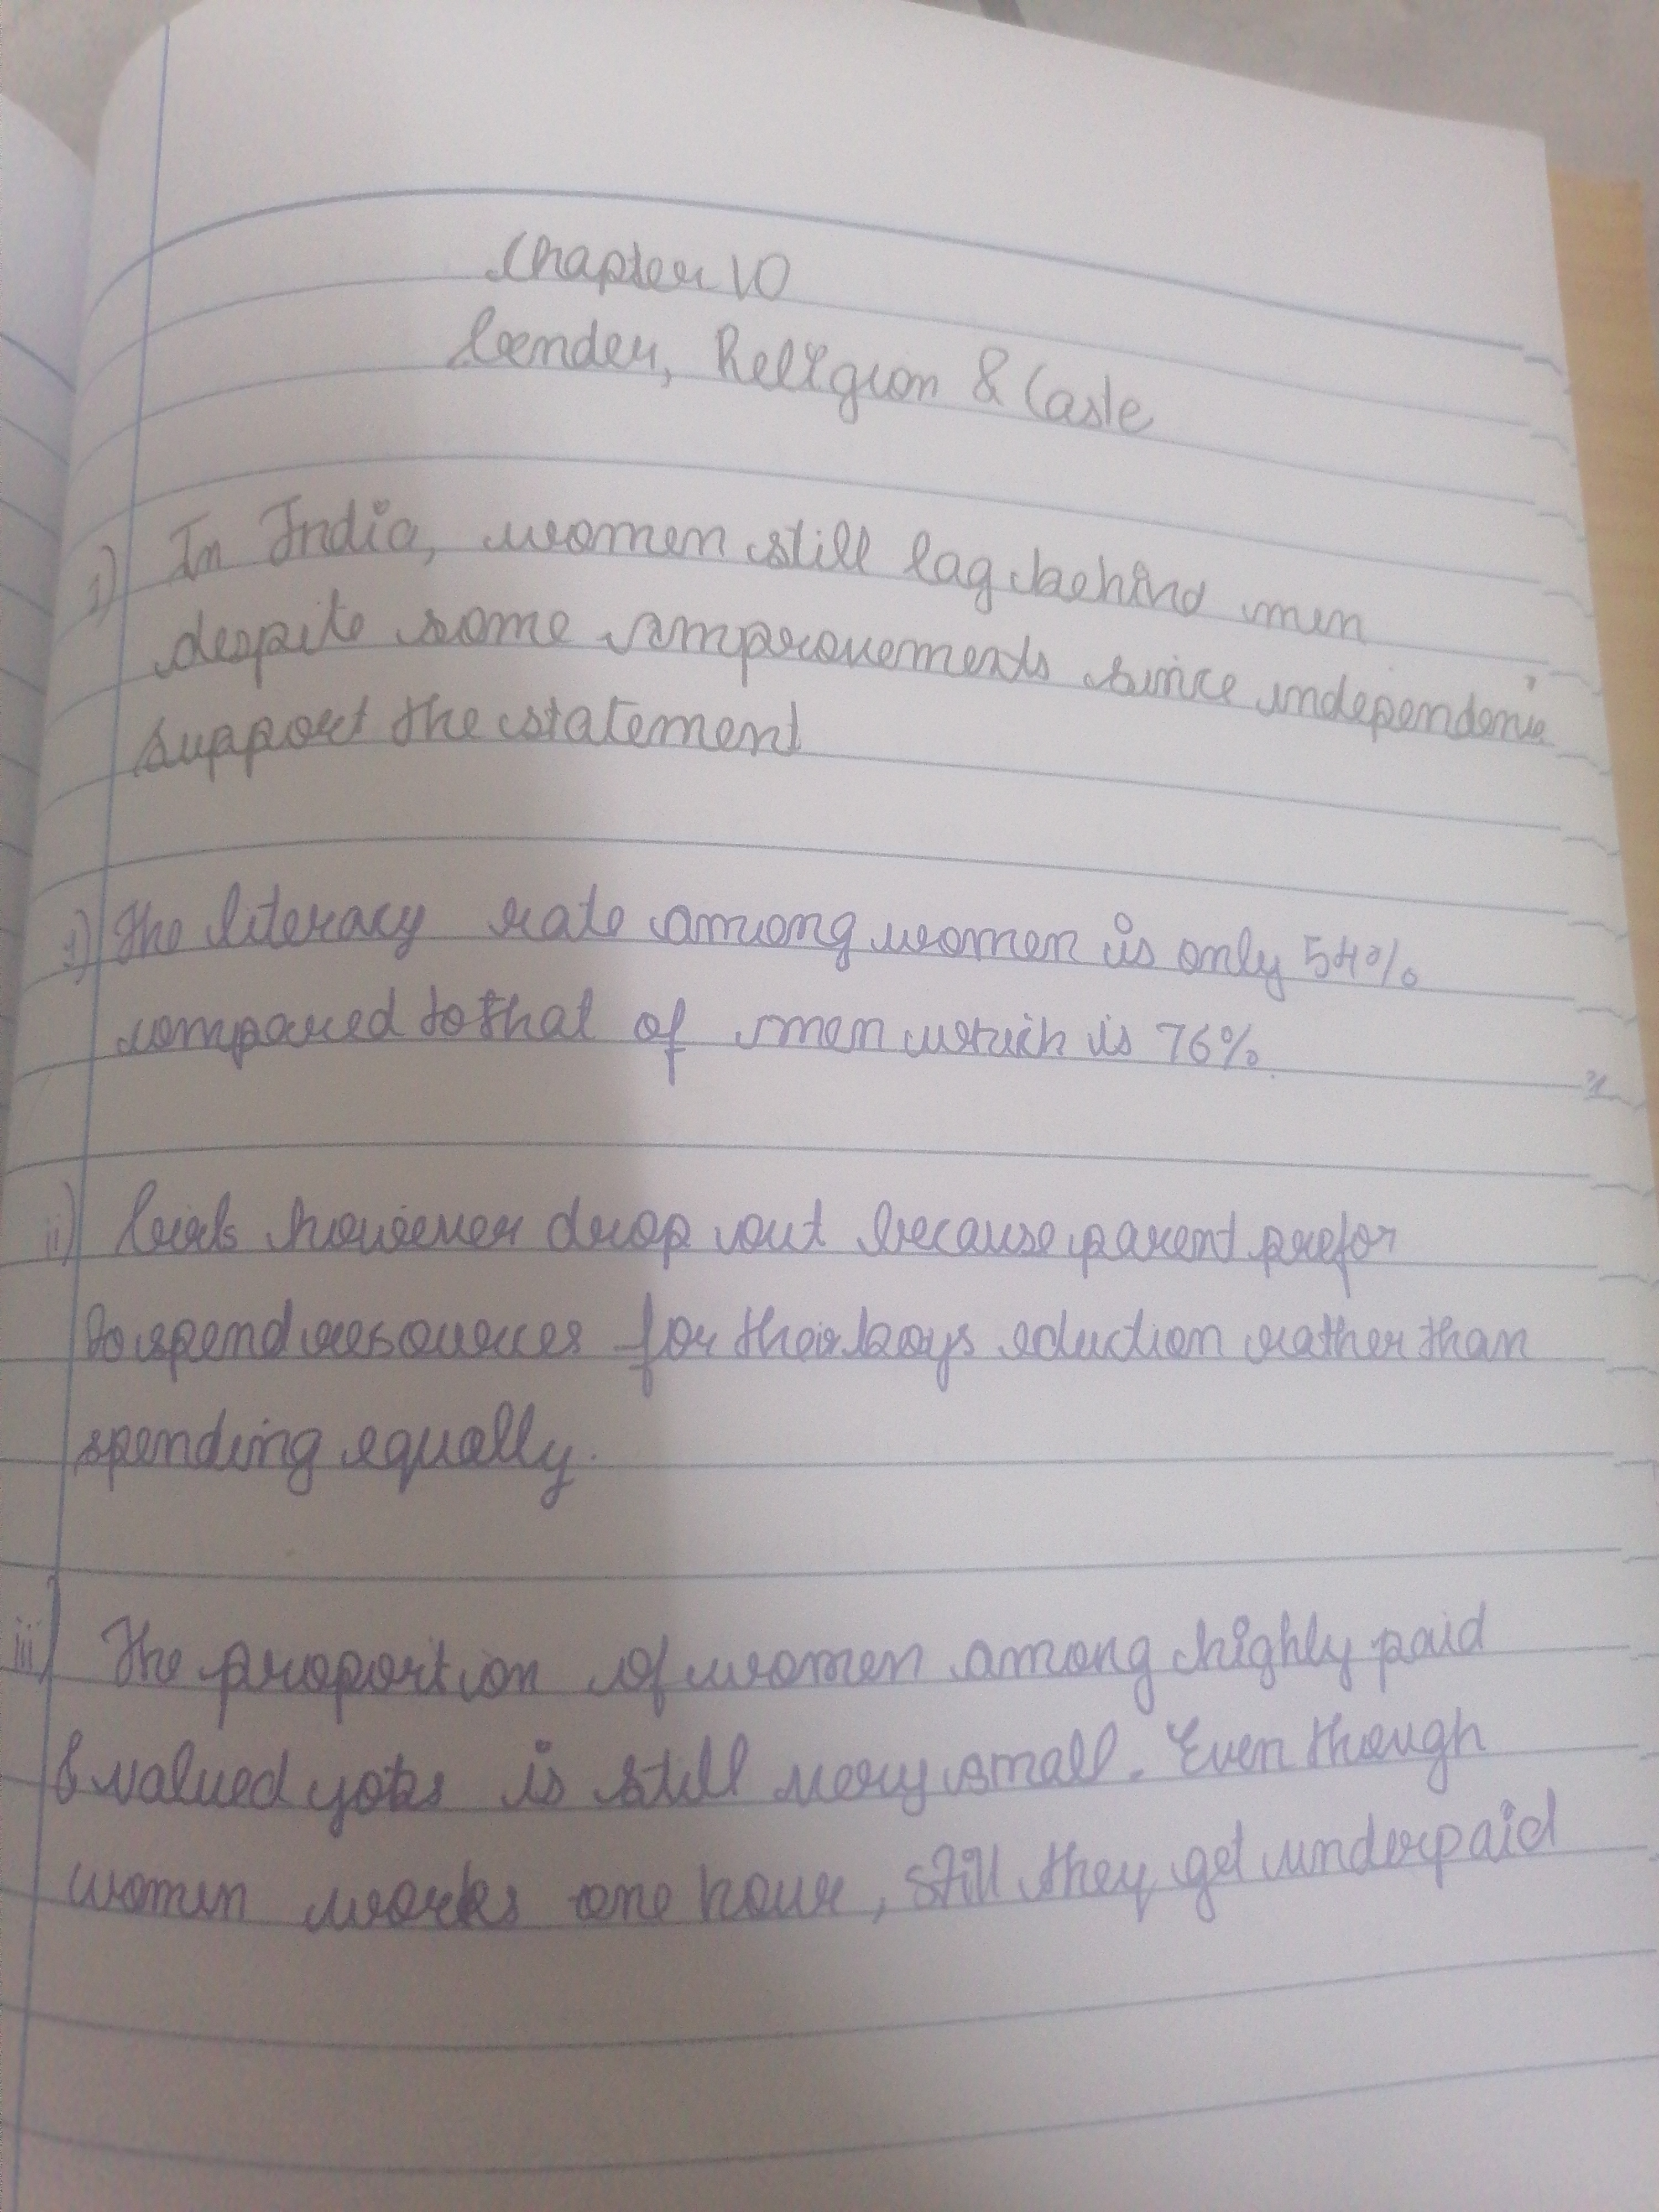 Chapter 10
Gender, Religion & Caste
1) In India, women still lag behind men
despite some improvements since independence
support the statement
i) The literacy rate among women is only 54%
compared to that of men which is 76%.
ii) Girls however drop out because parent prefer
to spend resources for their boys eduction rather than
spending equally.
iii) The proportion of women among highly paid
& valued jobs is still very small. Even though
women works one hour, still they get underpaid